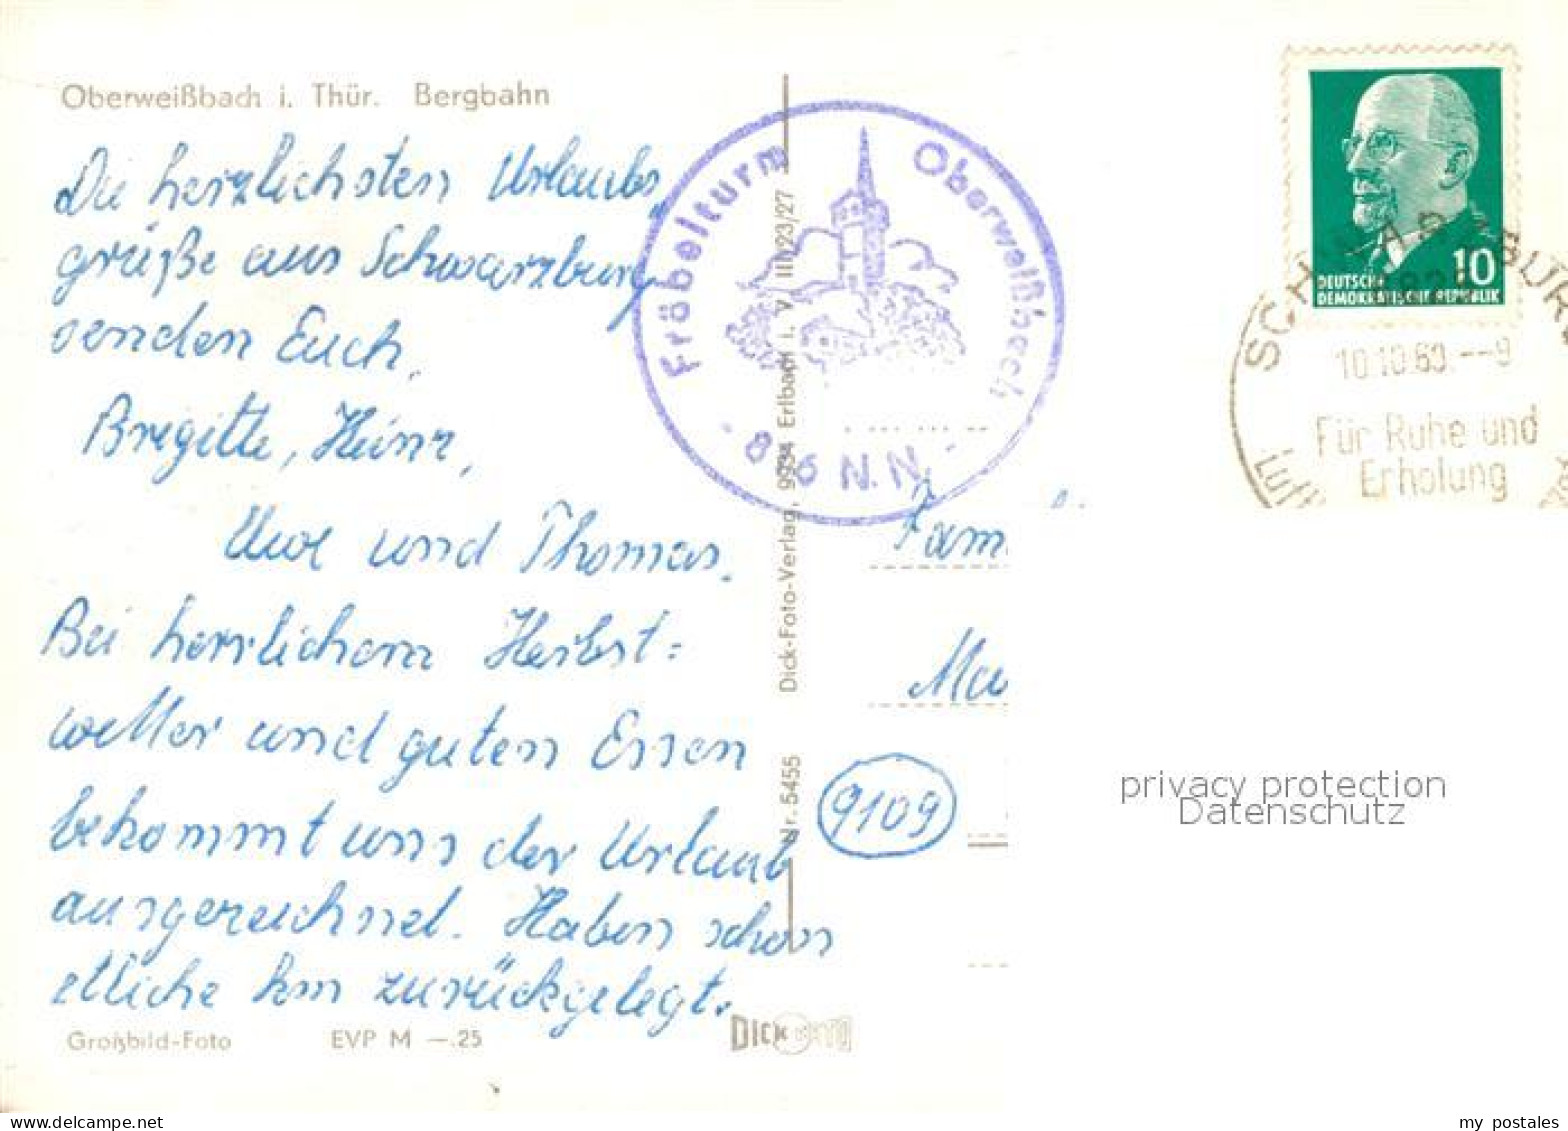 Oberweißbach i. Thür. Bergbahn
Die herzlichsten Urlaubs„
grüße aus Schwarzburg
senden Euch,
Brigitte, Heinz,
Uwe und Thomas.
Bei herrlichem Herbst=
wetter und guten Essen
bekommt uns der Urlaub
ausgezeichnet. Haben schon
etliche km zurückgelegt.
Großbild-Foto EVP M —.25
Fröbelturm Oberweißbach
N.N.
Nr. 5455 Dick-Foto-Verlag, 9934 Erlbach i. V. III/23/27
DICK FOTO
10
DEUTSCHE
DEMOKRATISCHE REPUBLIK
SCHWARZBURG
10.10.69.--9
Für Ruhe und
Erholung
Luft
Fam.
9109
privacy protection
Datenschutz
my postales